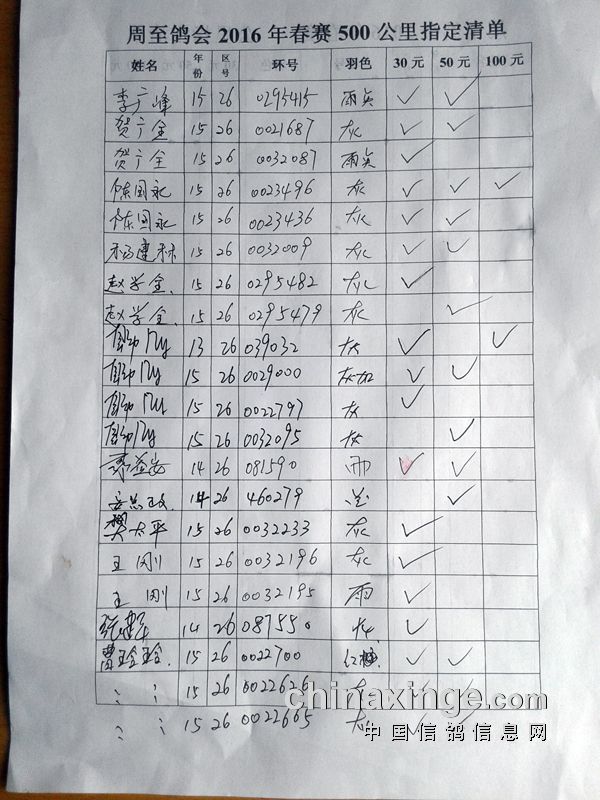 周至鸽会 2016 年春赛 500 公里指定清单
姓名 年份 区号 环号 羽色 30 元 50 元 100 元
李广峰 15 26 0295415 雨点 ✓ ✓
贺广全 15 26 0021687 灰 ✓ ✓
贺广全 15 26 0032087 雨点 ✓
陈国永 15 26 0023496 灰 ✓ ✓ ✓
陈国永 15 26 0023436 灰 ✓ ✓
杨建林 15 26 0032009 灰 ✓ ✓
赵学全. 15 26 0295482 灰 ✓
赵学全. 15 26 0295479 灰 ✓
13 26 039032 灰 ✓ ✓
15 26 0029000 灰加 ✓ ✓
15 26 0022797 灰 ✓
15 26 0032095 灰 ✓
14 26 081590 雨 ✓ ✓
14 26 460279 ✓
樊太平 15 26 0032233 灰 ✓
王刚 15 26 0032196 灰 ✓
王刚 15 26 0032195 雨 ✓
14 26 087550 灰 ✓
曹玲玲. 15 26 0022700 ✓ ✓
15 26 0022626 灰
15 26 0022665 灰
chinaxinge.com
中国信鸽信息网